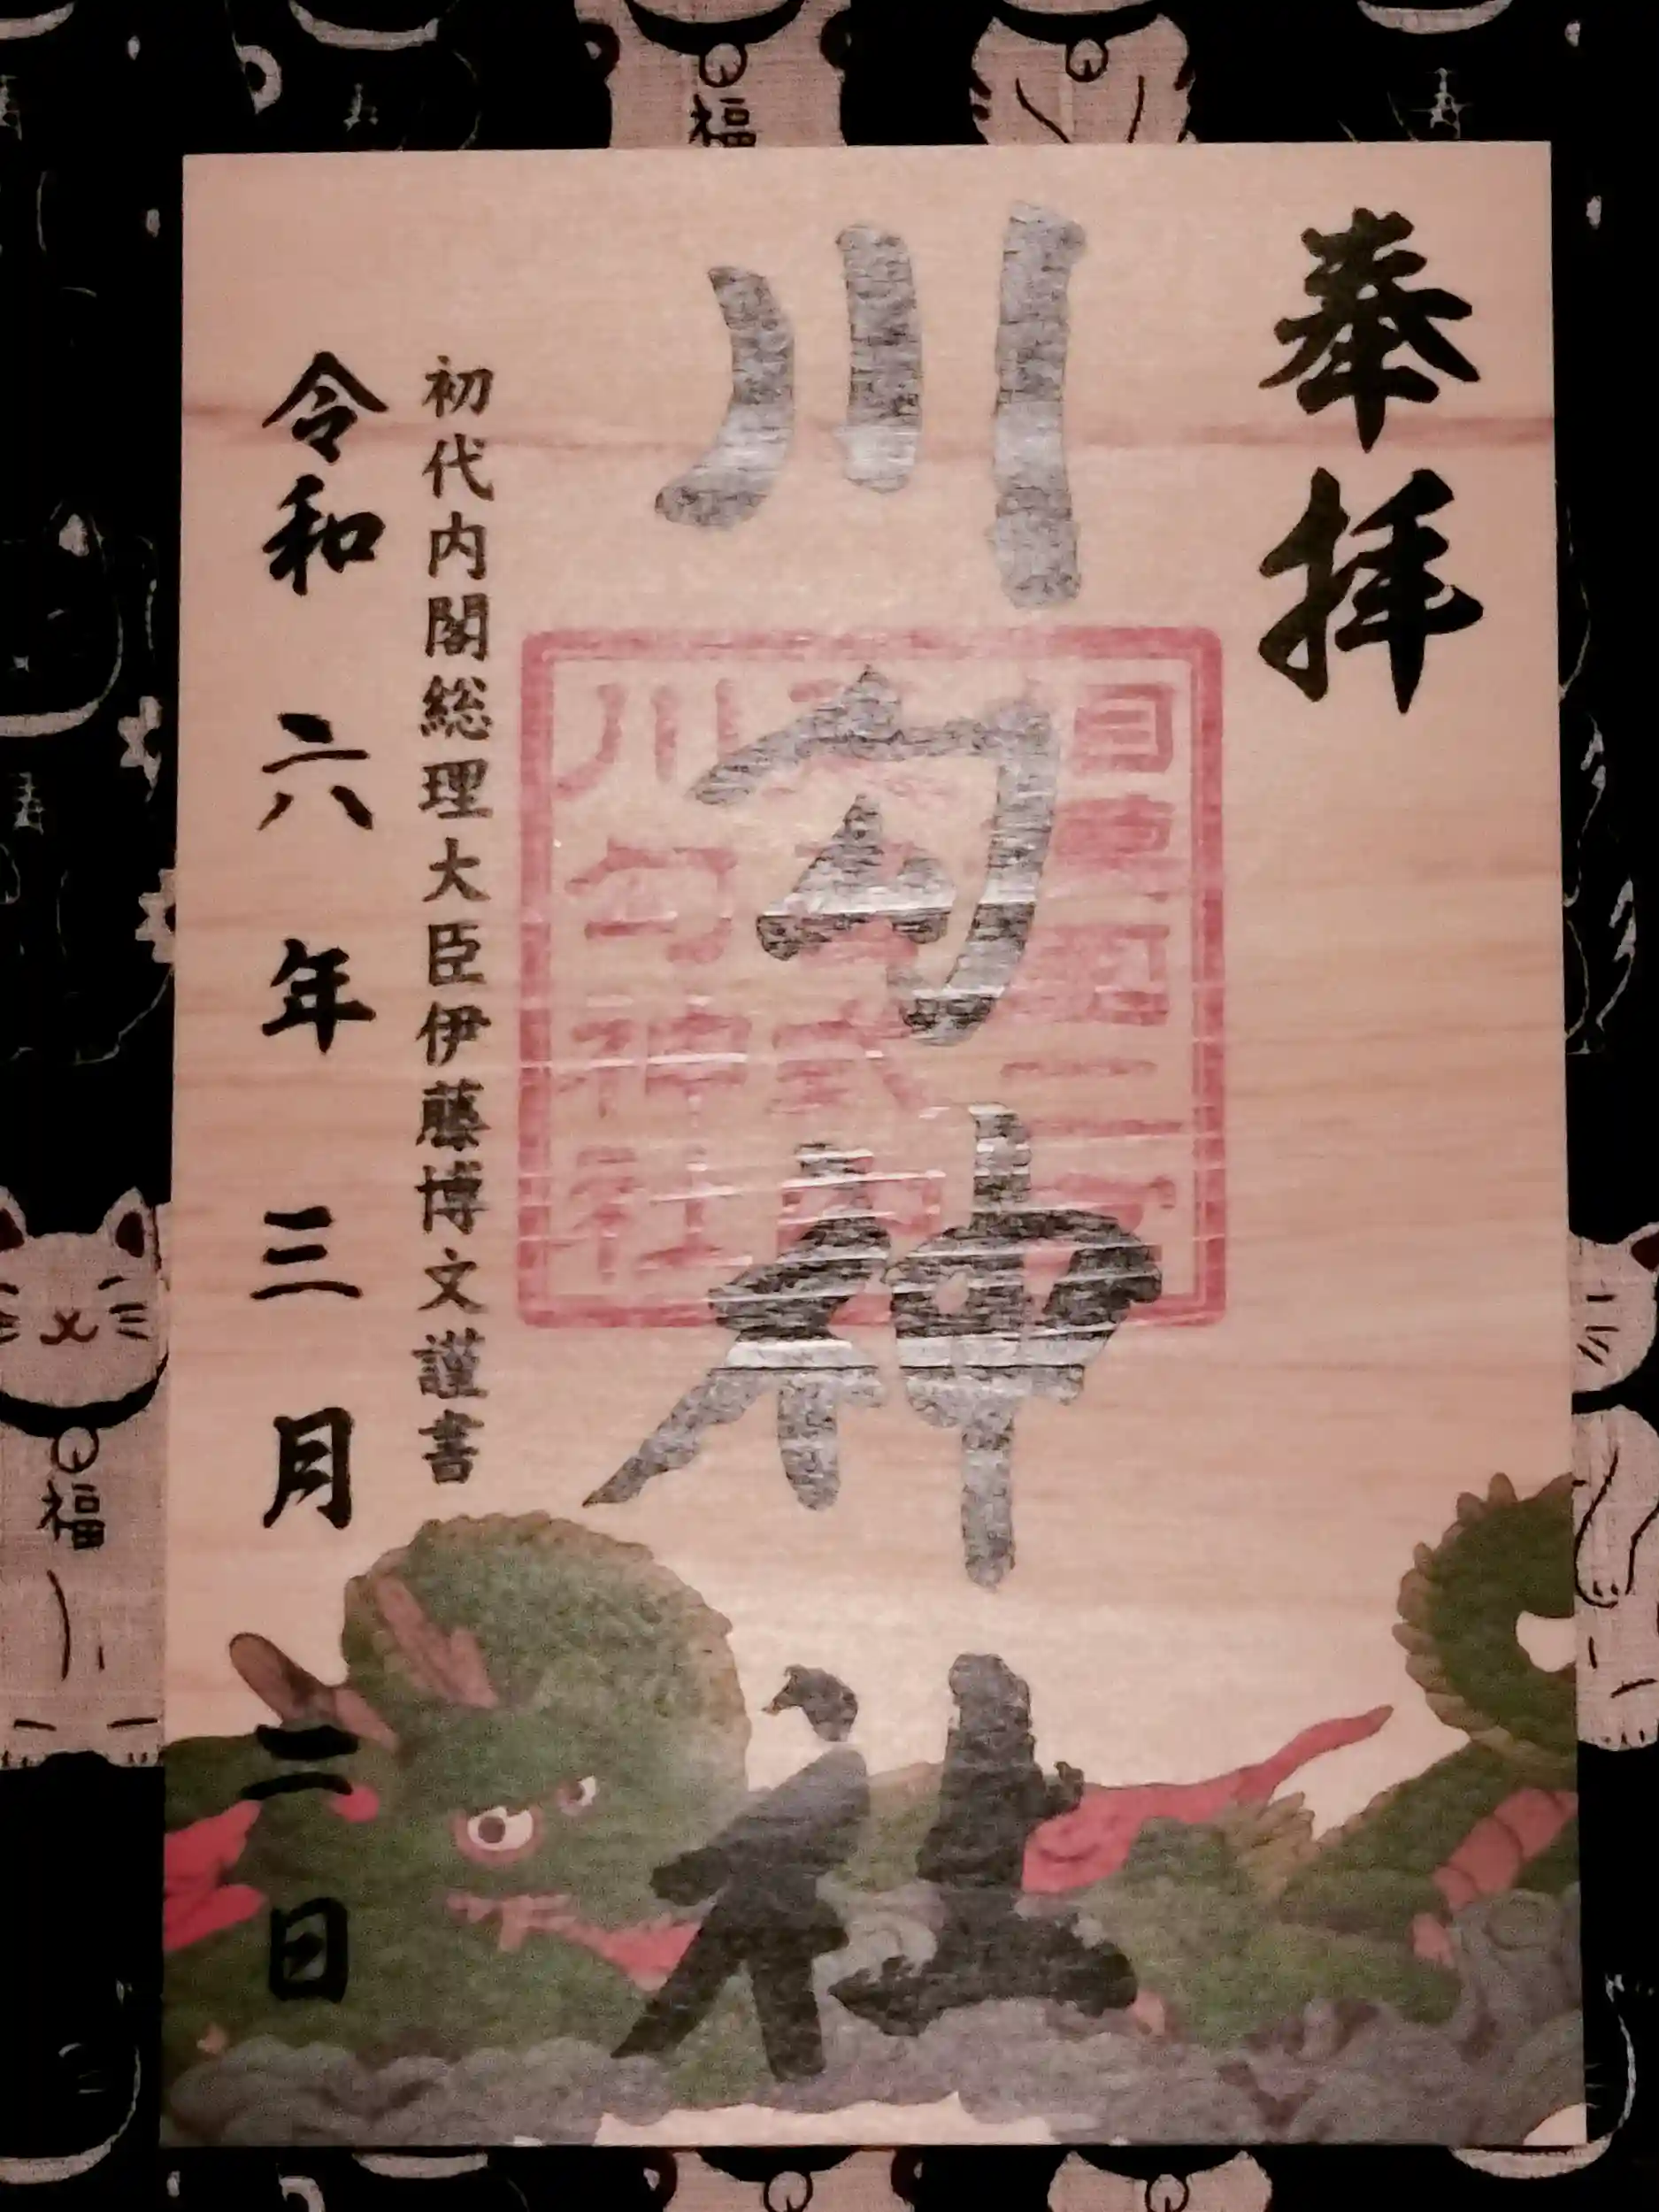 奉拝
川勾神社
初代内閣総理大臣伊藤博文謹書
令和六年三月二日
川勾神社
福
福